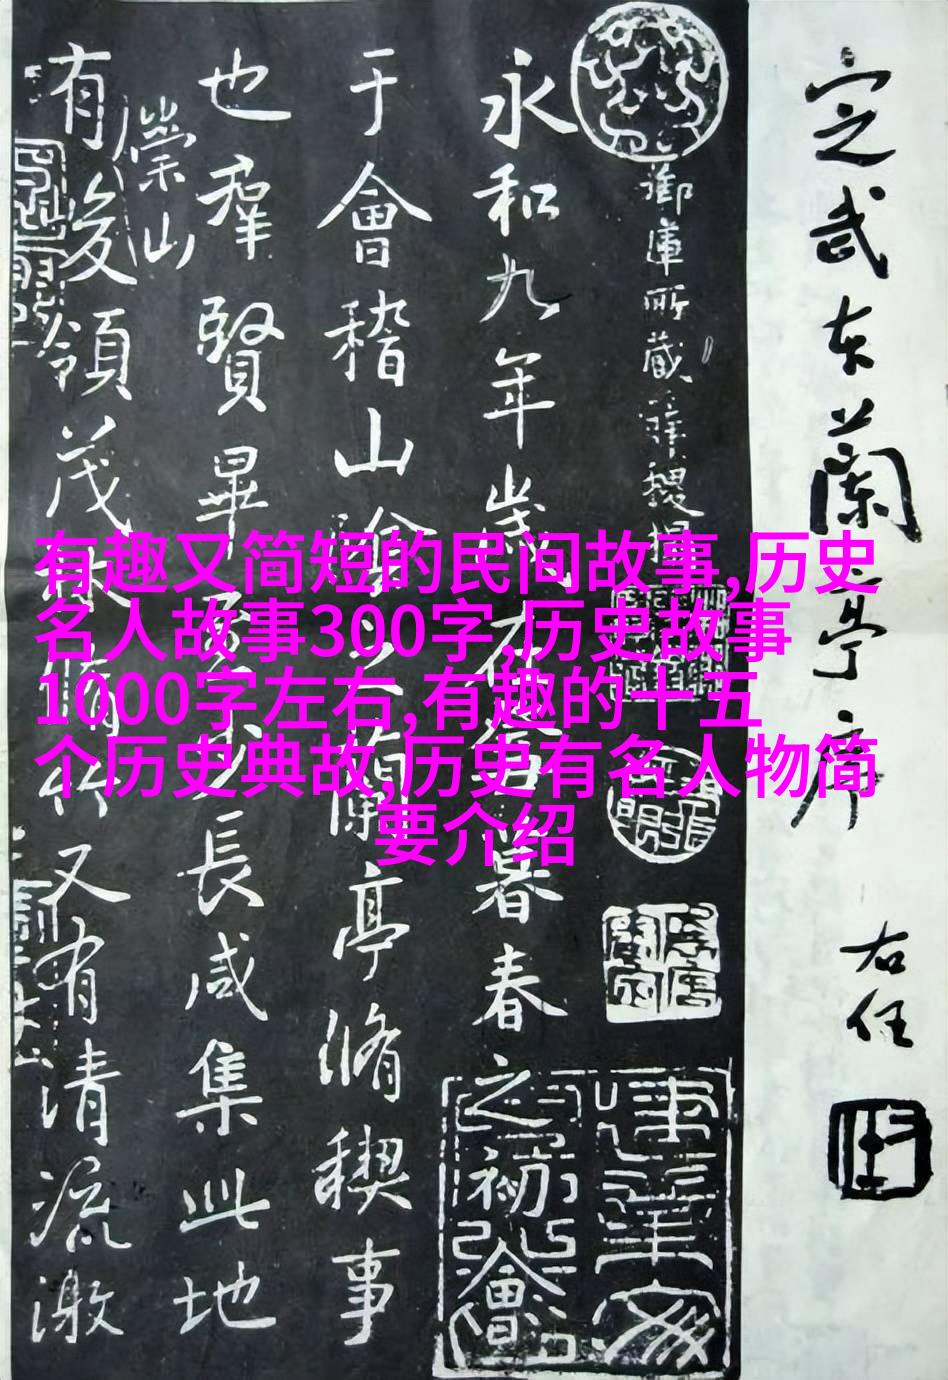 定武本蘭亭序
右任
御庫所藏
永和九年歲在癸丑暮春之初會
于會稽山陰之蘭亭脩稧事
也羣賢畢至少長咸集此地
有崇山
峻領茂林脩竹又有清流激
有趣又简短的民间故事,历史
名人故事300字,历史故事
1000字左右,有趣的十五
个历史典故,历史有名人物简
要介绍